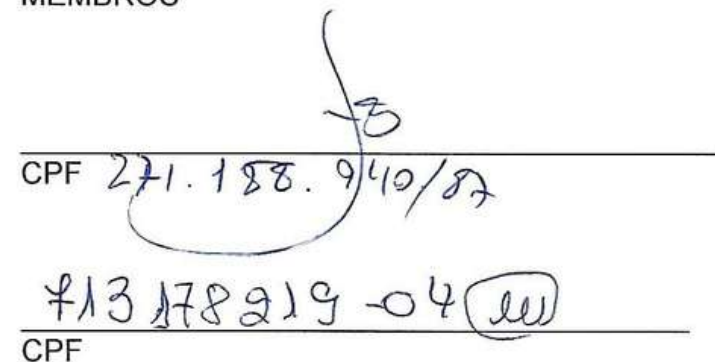 MEMBROS
CPF 271.188.940/87
713178219-04
CPF